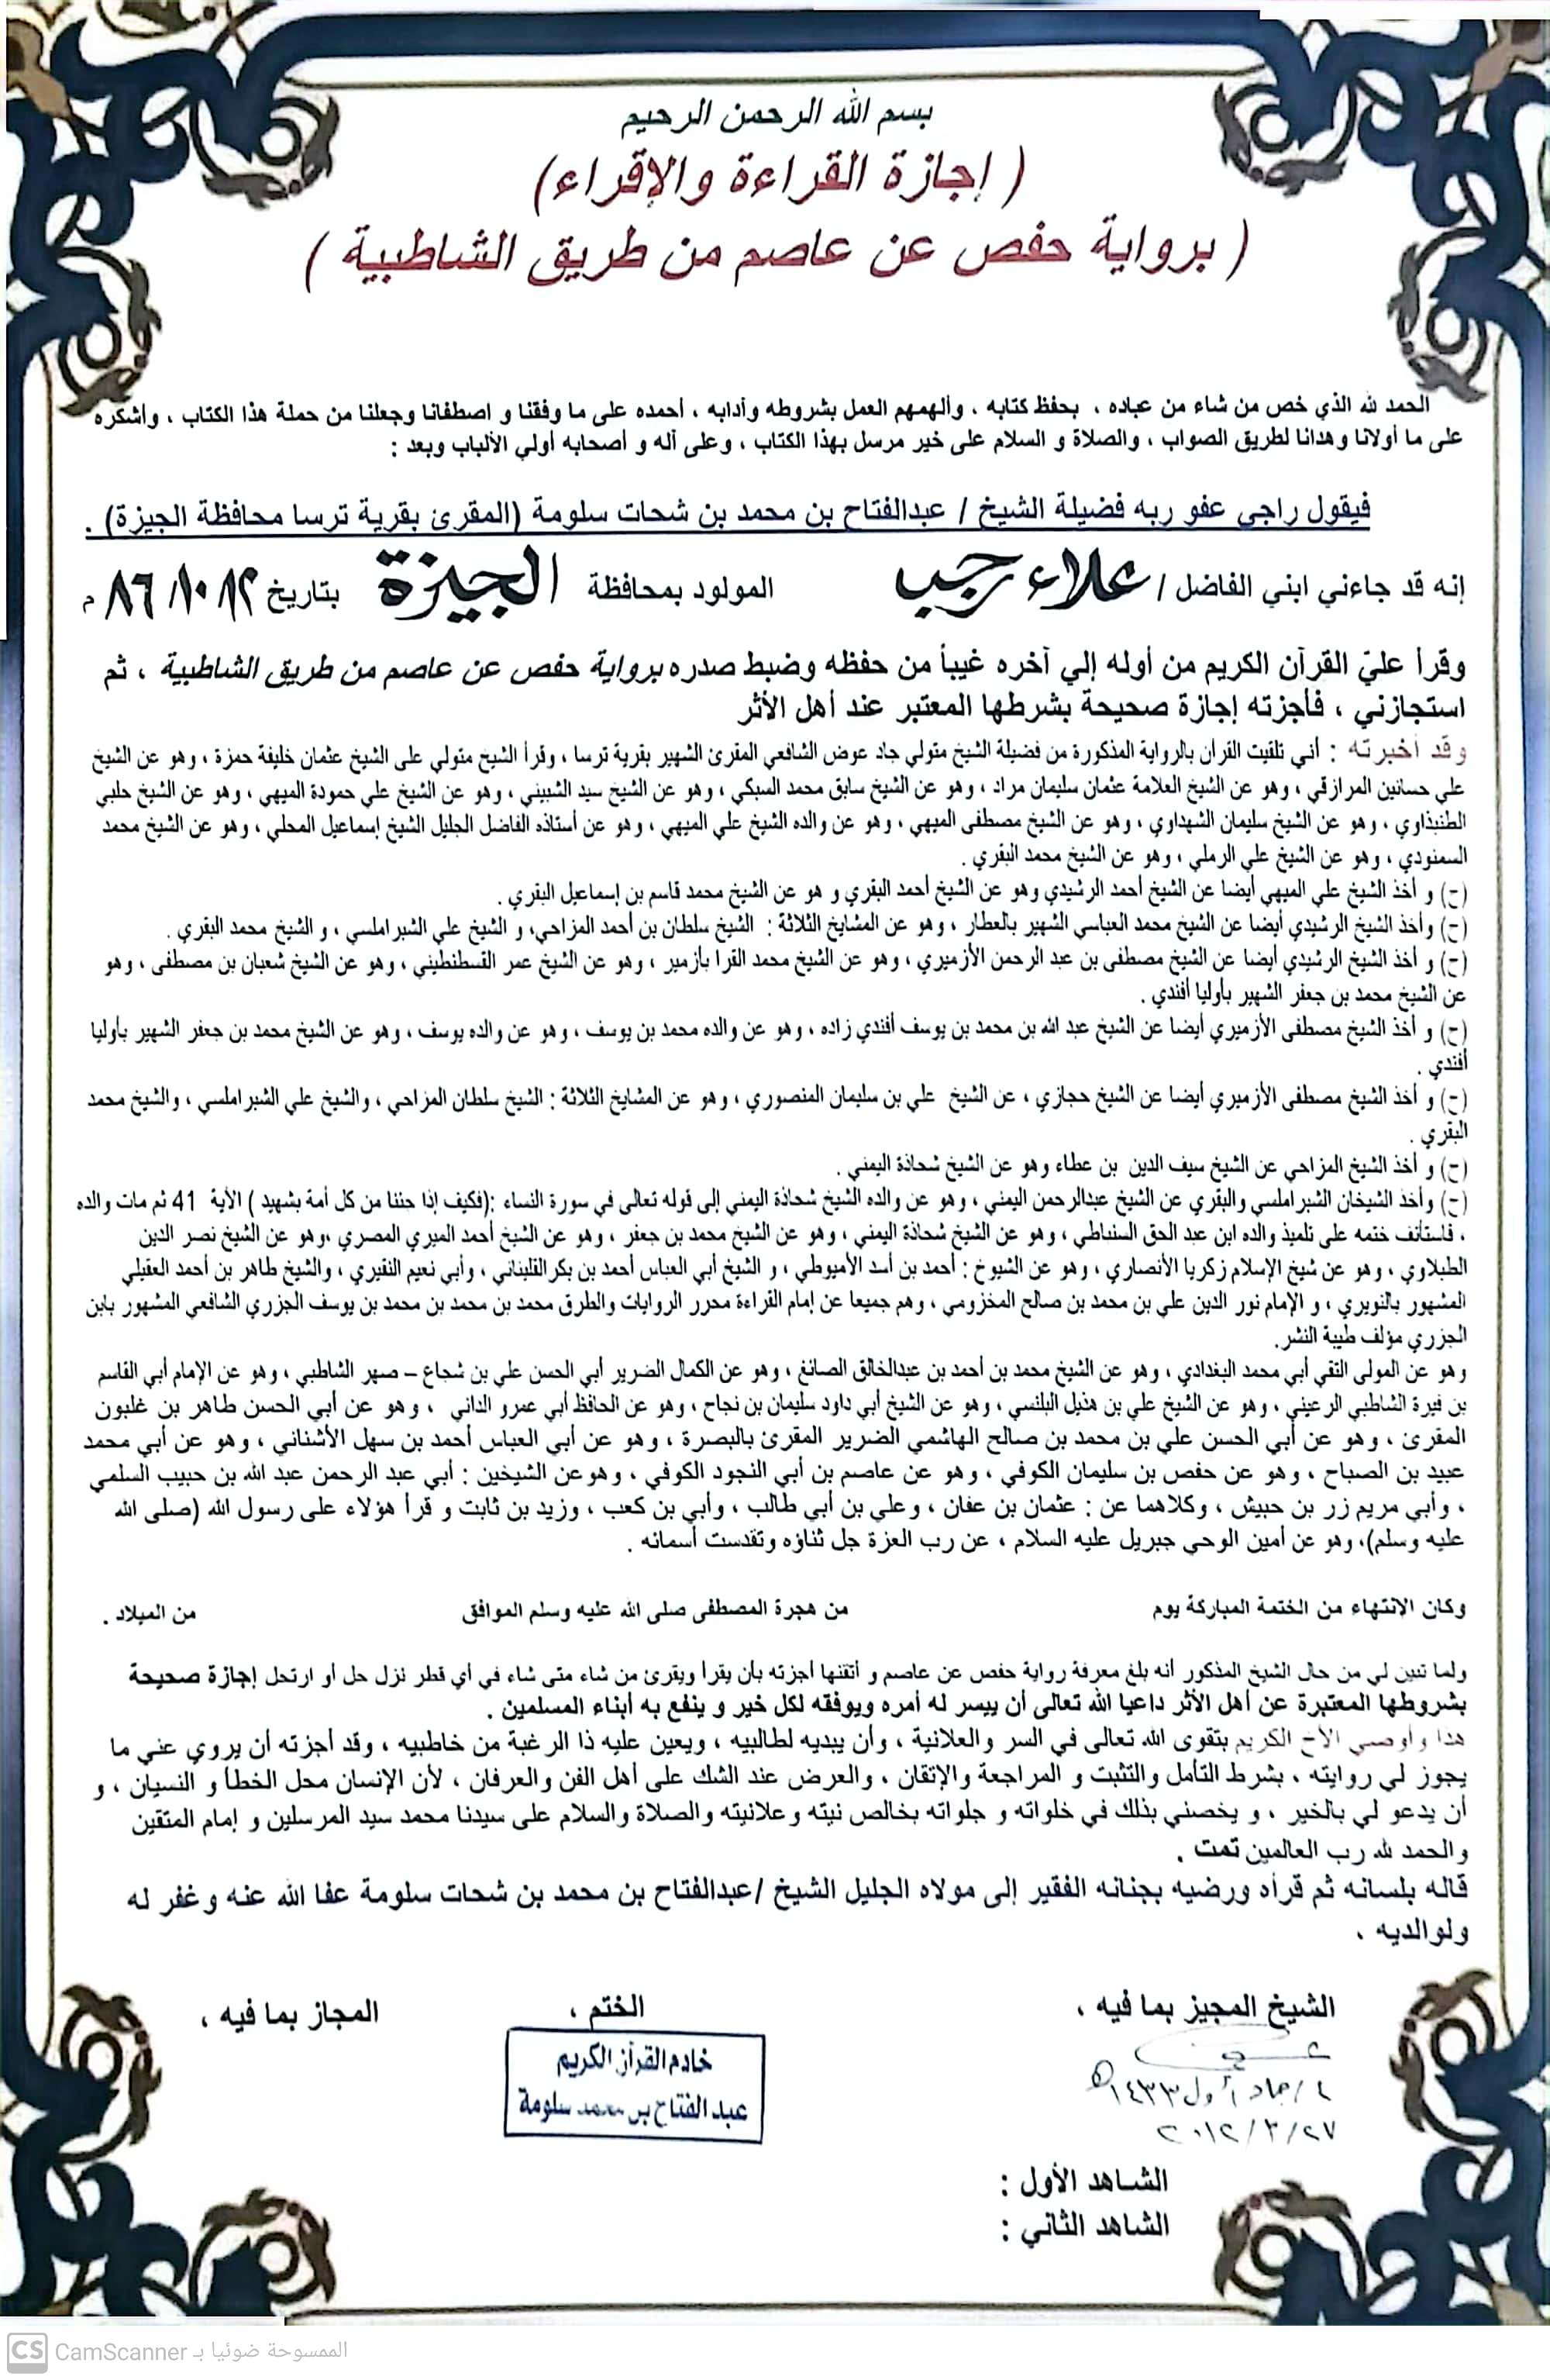 بسم الله الرحمن الرحيم
( إجازة القراءة والإقراء)
( برواية حفص عن عاصم من طريق الشاطبية )
الحمد لله الذي خص من شاء من عباده ، بحفظ كتابه ، وألهمهم العمل بشروطه وأدابه ، أحمده على ما وفقنا و اصطفانا وجعلنا من حملة هذا الكتاب ، وأشكره
على ما أولانا وهدانا لطريق الصواب ، والصلاة و السلام على خير مرسل بهذا الكتاب ، وعلى آله و أصحابه أولي الألباب وبعد :
فيقول راجي عفو ربه فضيلة الشيخ / عبدالفتاح بن محمد بن شحات سلومة (المقرئ بقرية ترسا محافظة الجيزة) .
إنه قد جاءني ابني الفاضل / علاء رجب المولود بمحافظة الجيزة بتاريخ ١٢/ ١٠/ ٨٦ م
وقرأ عليّ القرآن الكريم من أوله إلي آخره غيباً من حفظه وضبط صدره برواية حفص عن عاصم من طريق الشاطبية ، ثم
استجازني ، فأجزته إجازة صحيحة بشرطها المعتبر عند أهل الأثر
وقد أخبرته : أني تلقيت القرآن بالرواية المذكورة من فضيلة الشيخ متولي جاد عوض الشافعي المقرئ الشهير بقرية ترسا ، وقرأ الشيخ متولي على الشيخ عثمان خليفة حمزة ، وهو عن الشيخ
علي حسانين المرازقي ، وهو عن الشيخ العلامة عثمان سليمان مراد ، وهو عن الشيخ سابق محمد السبكي ، وهو عن الشيخ سيد الشبيني ، وهو عن الشيخ علي حمودة الميهي ، وهو عن الشيخ حلبي
الطنبذاوي ، وهو عن الشيخ سليمان الشهداوي ، وهو عن الشيخ مصطفى الميهي ، وهو عن والده الشيخ علي الميهي ، وهو عن أستاذه الفاضل الجليل الشيخ إسماعيل المحلي ، وهو عن الشيخ محمد
السمنودي ، وهو عن الشيخ علي الرملي ، وهو عن الشيخ محمد البقري .
(ح) و أخذ الشيخ علي الميهي أيضا عن الشيخ أحمد الرشيدي وهو عن الشيخ أحمد البقري و هو عن الشيخ محمد قاسم بن إسماعيل البقري .
(ح) وأخذ الشيخ الرشيدي أيضا عن الشيخ محمد العباسي الشهير بالعطار ، وهو عن المشايخ الثلاثة : الشيخ سلطان بن أحمد المزاحي، و الشيخ علي الشبراملسي ، و الشيخ محمد البقري .
(ح) و أخذ الشيخ الرشيدي أيضا عن الشيخ مصطفى بن عبد الرحمن الأزميري ، وهو عن الشيخ محمد القرا بأزمير ، وهو عن الشيخ عمر القسطنطيني ، وهو عن الشيخ شعبان بن مصطفى ، وهو
عن الشيخ محمد بن جعفر الشهير بأوليا أفندي .
(ح) و أخذ الشيخ مصطفى الأزميري أيضا عن الشيخ عبد الله بن محمد بن يوسف أفندي زاده ، وهو عن والده محمد بن يوسف ، وهو عن والده يوسف ، وهو عن الشيخ محمد بن جعفر الشهير بأوليا
أفندي .
(ح) و أخذ الشيخ مصطفى الأزميري أيضا عن الشيخ حجازي ، عن الشيخ علي بن سليمان المنصوري ، وهو عن المشايخ الثلاثة : الشيخ سلطان المزاحي ، والشيخ علي الشبراملسي ، والشيخ محمد
البقري .
(ح) و أخذ الشيخ المزاحي عن الشيخ سيف الدين بن عطاء وهو عن الشيخ شحاذة اليمني .
(ح) وأخذ الشيخان الشبراملسي والبقري عن الشيخ عبدالرحمن اليمني ، وهو عن والده الشيخ شحاذة اليمني إلى قوله تعالى في سورة النساء :(فكيف إذا جئنا من كل أمة بشهيد ) الآية 41 ثم مات والده
، فاستأنف ختمه على تلميذ والده ابن عبد الحق السنباطي ، وهو عن الشيخ شحاذة اليمني ، وهو عن الشيخ محمد بن جعفر ، وهو عن الشيخ أحمد الميري المصري ،وهو عن الشيخ نصر الدين
الطبلاوي ، وهو عن شيخ الإسلام زكريا الأنصاري ، وهو عن الشيوخ : أحمد بن أسد الأميوطي ، و الشيخ أبي العباس أحمد بن بكر القليناني ، وأبي نعيم النقيري ، والشيخ طاهر بن أحمد العقيلي
المشهور بالنويري ، و الإمام نور الدين علي بن محمد بن صالح المخزومي ، وهم جميعا عن إمام القراءة محرر الروايات والطرق محمد بن محمد بن محمد بن يوسف الجزري الشافعي المشهور بابن
الجزري مؤلف طيبة النشر.
وهو عن المولى التقي أبي محمد البغدادي ، وهو عن الشيخ محمد بن أحمد بن عبدالخالق الصائغ ، وهو عن الكمال الضرير أبي الحسن علي بن شجاع – صهر الشاطبي ، وهو عن الإمام أبي القاسم
بن فيرة الشاطبي الرعيني ، وهو عن الشيخ علي بن هذيل البلنسي ، وهو عن الشيخ أبي داود سليمان بن نجاح ، وهو عن الحافظ أبي عمرو الداني ، وهو عن أبي الحسن طاهر بن غلبون
المقرئ ، وهو عن أبي الحسن علي بن محمد بن صالح الهاشمي الضرير المقرئ بالبصرة ، وهو عن أبي العباس أحمد بن سهل الأشناني ، وهو عن أبي محمد
عبيد بن الصباح ، وهو عن حفص بن سليمان الكوفي ، وهو عن عاصم بن أبي النجود الكوفي ، وهوعن الشيخين : أبي عبد الرحمن عبد الله بن حبيب السلمي
، وأبي مريم زر بن حبيش ، وكلاهما عن : عثمان بن عفان ، وعلي بن أبي طالب ، وأبي بن كعب ، وزيد بن ثابت و قرأ هؤلاء على رسول الله (صلى الله
عليه وسلم)، وهو عن أمين الوحي جبريل عليه السلام ، عن رب العزة جل ثناؤه وتقدست أسمائه .
وكان الإنتهاء من الختمة المباركة يوم من هجرة المصطفى صلى الله عليه وسلم الموافق من الميلاد .
ولما تبين لي من حال الشيخ المذكور أنه بلغ معرفة رواية حفص عن عاصم و أتقنها أجزته بأن يقرأ ويقرئ من شاء متى شاء في أي قطر نزل حل أو ارتحل إجازة صحيحة
بشروطها المعتبرة عن أهل الأثر داعيا الله تعالى أن ييسر له أمره ويوفقه لكل خير و ينفع به أبناء المسلمين .
هذا وأوصي الأخ الكريم بتقوى الله تعالى في السر والعلانية ، وأن يبديه لطالبيه ، ويعين عليه ذا الرغبة من خاطبيه ، وقد أجزته أن يروي عني ما
يجوز لي روايته ، بشرط التأمل والتثبت و المراجعة والإتقان ، والعرض عند الشك على أهل الفن والعرفان ، لأن الإنسان محل الخطأ و النسيان ، و
أن يدعو لي بالخير ، و يخصني بذلك في خلواته و جلواته بخالص نيته وعلانيته والصلاة والسلام على سيدنا محمد سيد المرسلين و إمام المتقين
والحمد لله رب العالمين تمت .
قاله بلسانه ثم قرأه ورضيه بجنانه الفقير إلى مولاه الجليل الشيخ /عبدالفتاح بن محمد بن شحات سلومة عفا الله عنه وغفر له
ولوالديه ،
الشيخ المجيز بما فيه ، الختم ، المجاز بما فيه ،
خادم القرآن الكريم
عبد الفتاح بن محمد سلومة
٤ / جماد أول ١٤٣٣ ه
٢٧ / ٣ / ٢٠١٢
الشاهد الأول :
الشاهد الثاني :
CS CamScanner الممسوحة ضوئيا بـ